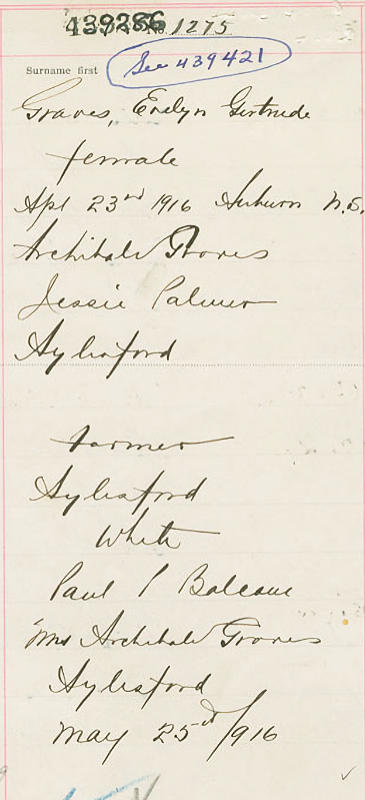 439286
No. 1275
See 439421
Surname first
Graves, Evelyn Gertrude
female
Apl 23rd 1916 Auburn N.S.
Archibald Graves
Jessie Palmer
Aylesford
Farmer
Aylesford
White
Paul
Mrs Archibald Graves
Aylesford
May 25th 1916